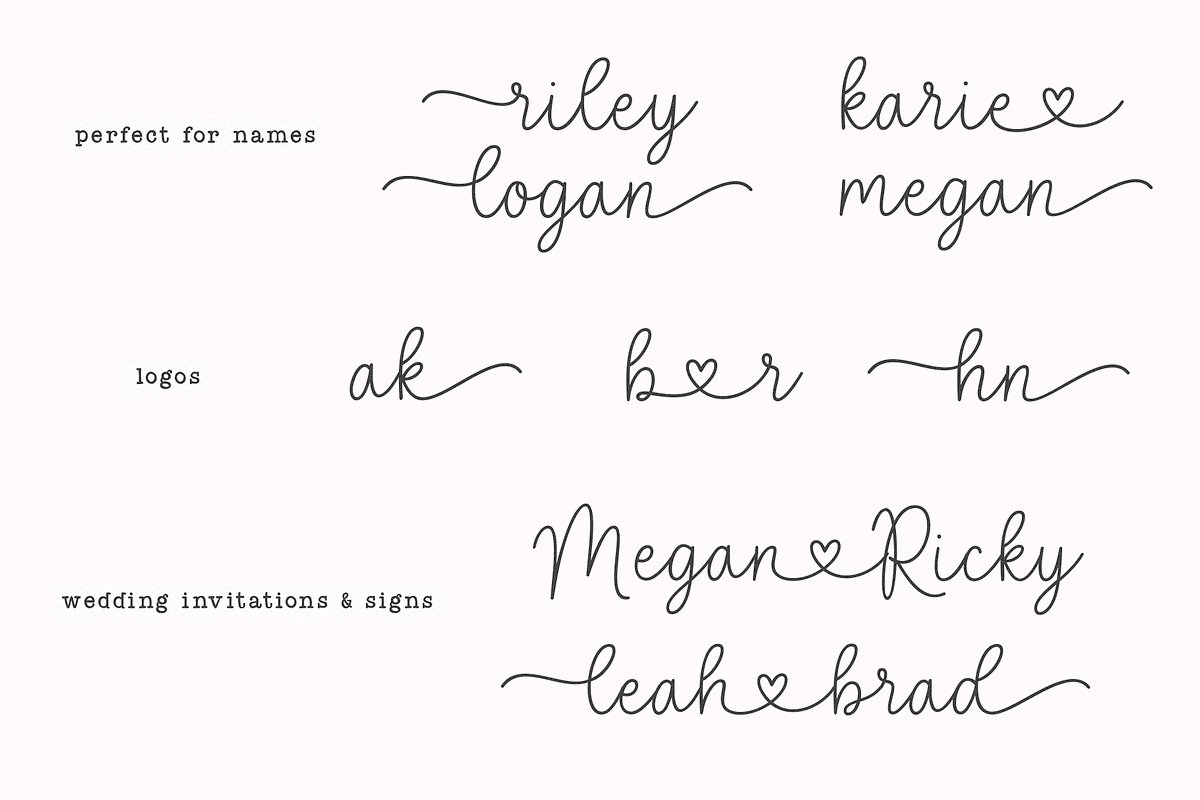 perfect for names
riley
karie♡
logan
megan
logos
ak
b♡r
hn
wedding invitations & signs
Megan♡Ricky
leah♡brad